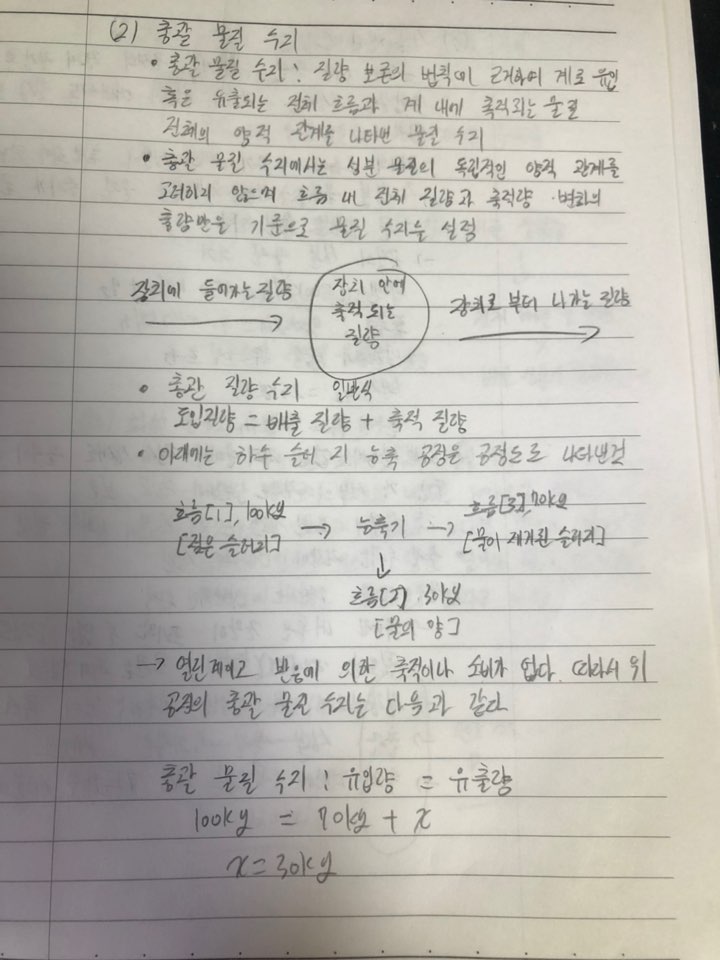 (2) 총괄 물질 수지
• 총괄 물질 수지 : 질량 보존의 법칙에 근거하여 계로 유입
혹은 유출되는 전체 흐름과 계 내에 축적되는 물질
전체의 양적 관계를 나타낸 물질 수지
• 총괄 물질 수지에서는 성분 물질의 독립적인 양적 관계를
고려하지 않으며 흐름 내 전체 질량과 축적량 변화의
총량만을 기준으로 물질 수지를 설정
장치에 들어가는 질량
장치 안에
축적되는
질량
장치로부터 나가는 질량
• 총괄 질량 수지 일반식
도입질량 = 배출 질량 + 축적 질량
• 아래에는 하수 슬러지 농축 공장을 공정도로 나타낸것
흐름[1], 100kg → 농축기 → 흐름[3], 70kg
[젖은 슬러지] [물이 제거된 슬러지]
↓
흐름[2] 30kg
[물의 양]
→ 열린계이고 반응에 의한 축적이나 소비가 없다. 따라서 위
공정의 총괄 물질 수지는 다음과 같다
총괄 물질 수지 : 유입량 = 유출량
100kg = 70kg + x
x = 30kg